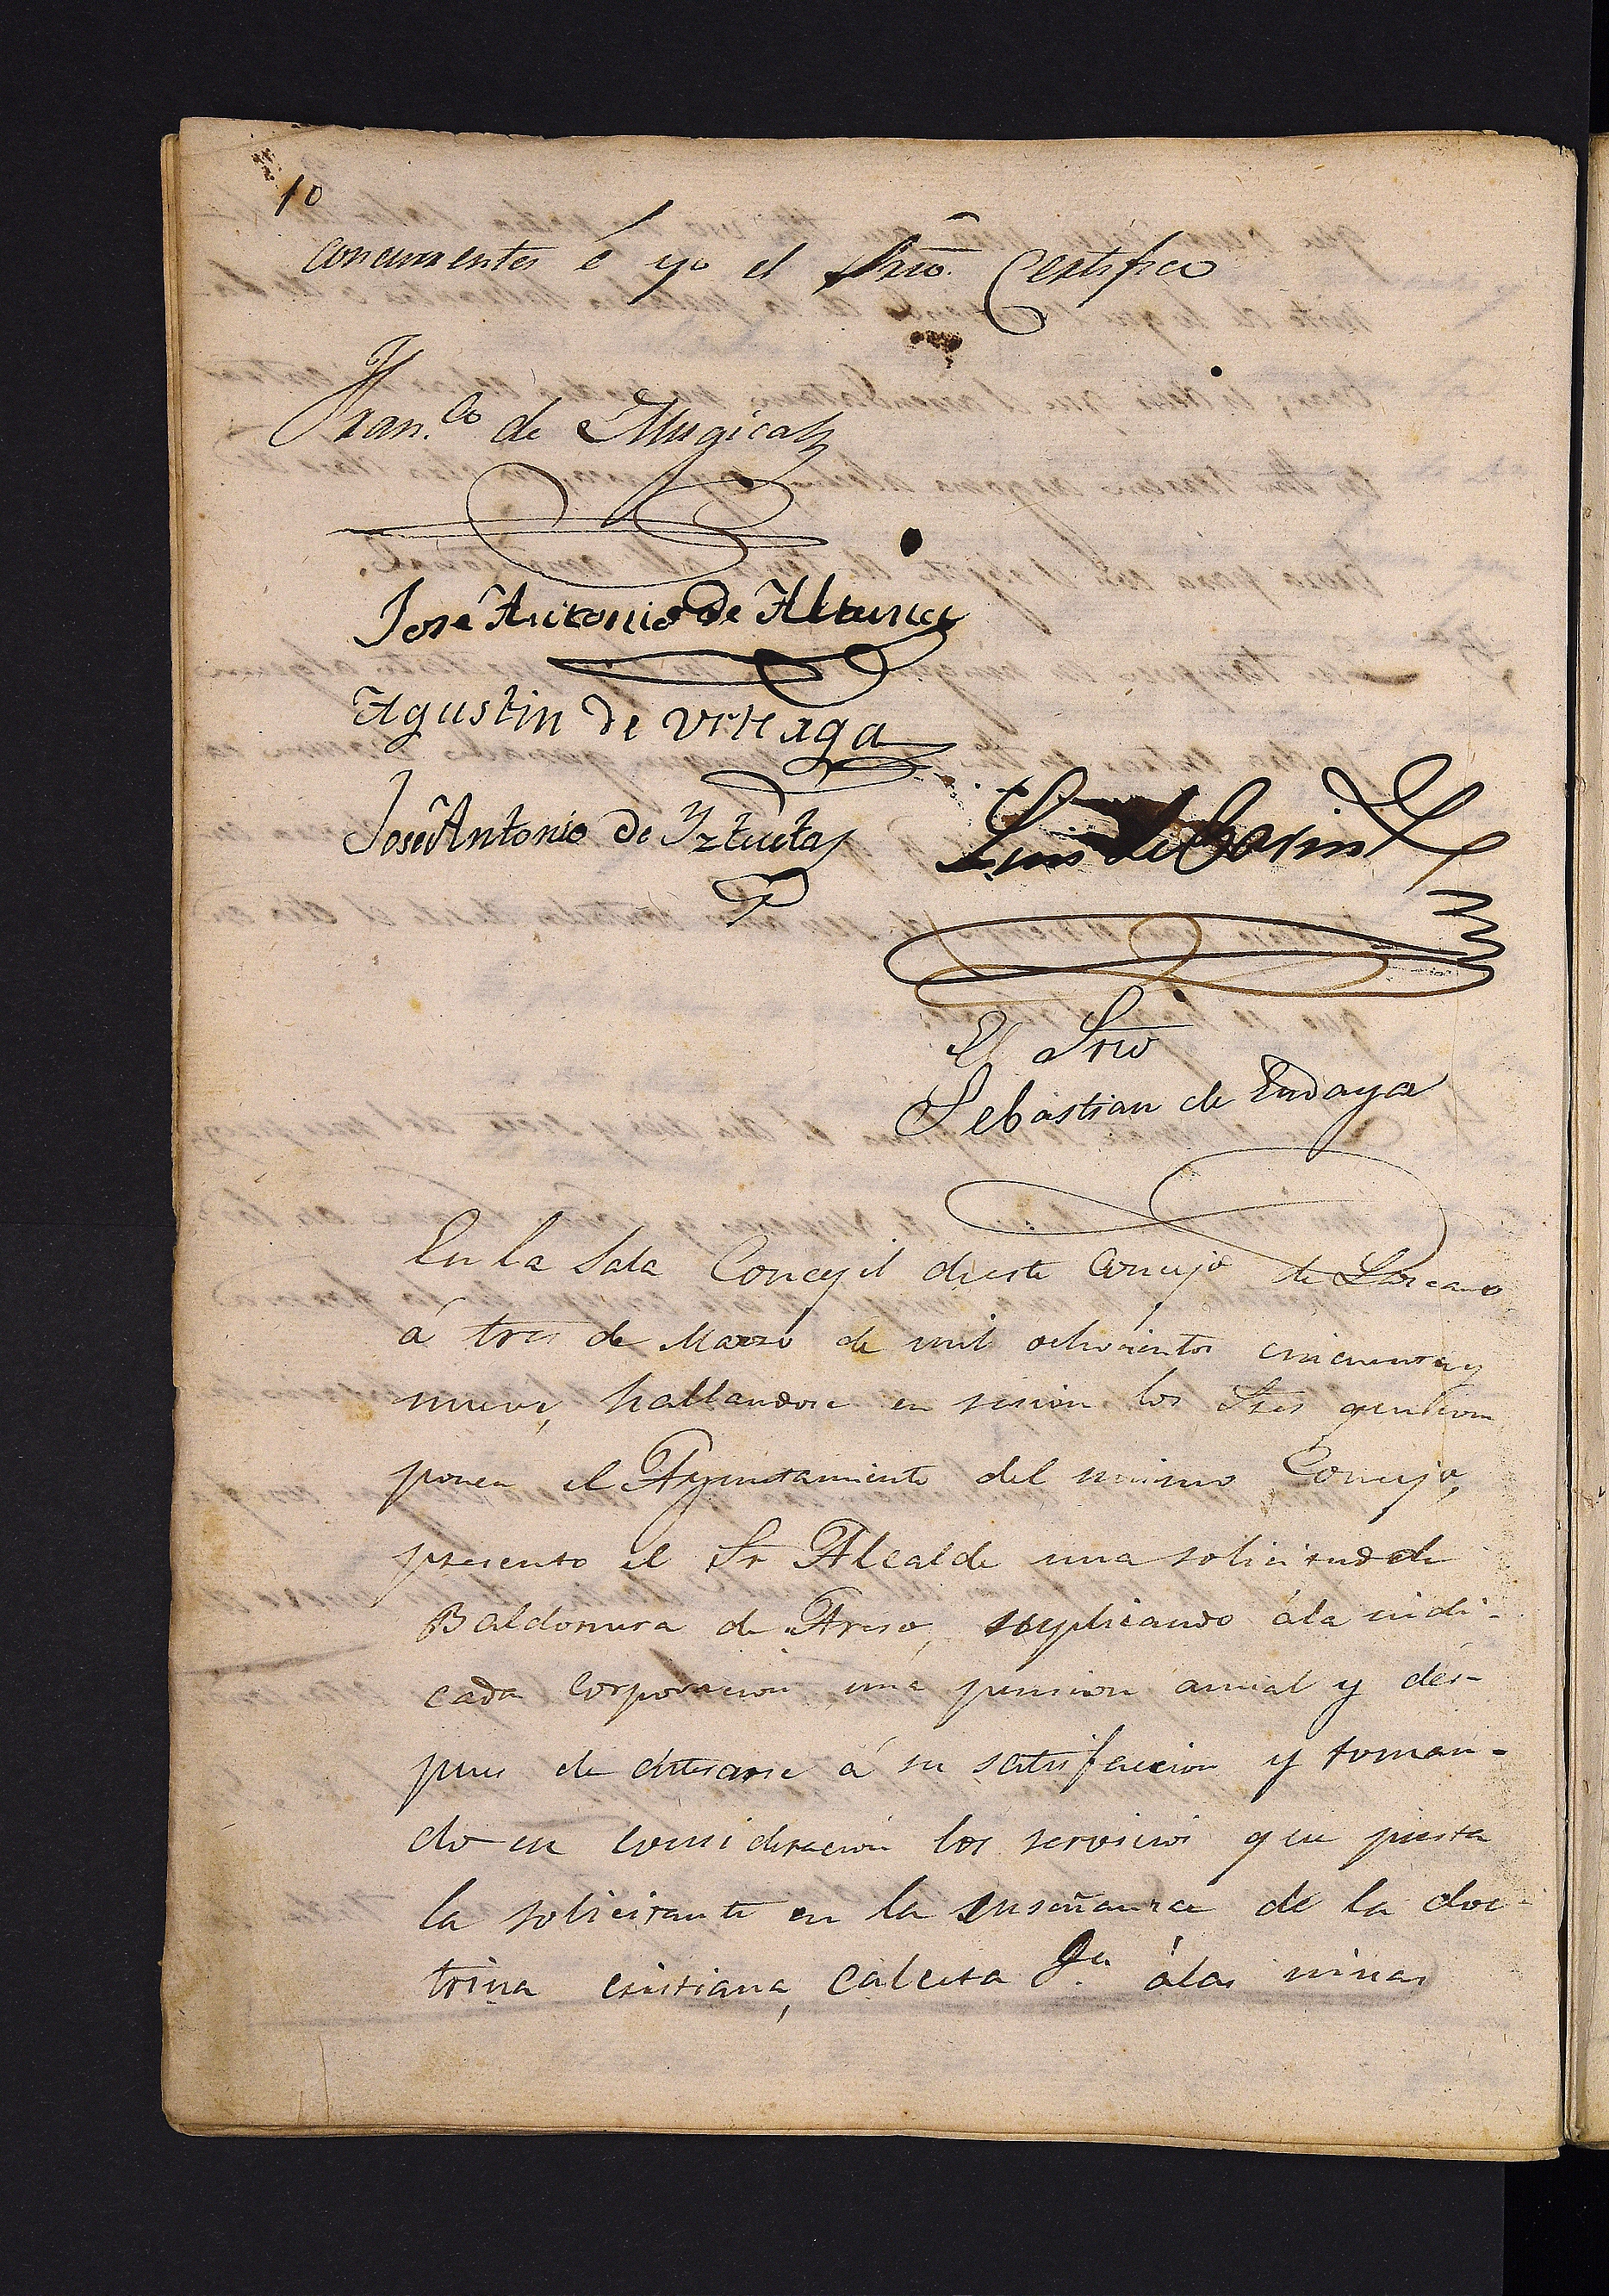 10
concurrentes é yo el Srio. Certifico
Fran.co de Mugica
José Antonio de Altuna
Agustin de Urteaga
José Antonio de Yztueta
Luis de
El Srio
Sebastian de Endaya
En la Sala Concejil de este Concejo de Lazcano
á tres de Marzo de mil ochocientos cincuenta y
nueve, hallandose en sesion los Sres que com
ponen el Ayuntamiento del mismo Concejo,
presento el Sr Alcalde una solicitud de
Baldomera de Areso, suplicando á la indi-
cada corporacion una pension anual y des-
pues de enterarse á su satisfaccion y toman-
do en consideracion los servicios que presta
la solicitante en la enseñanza de la doc-
trina cristiana, calceta á las niñas